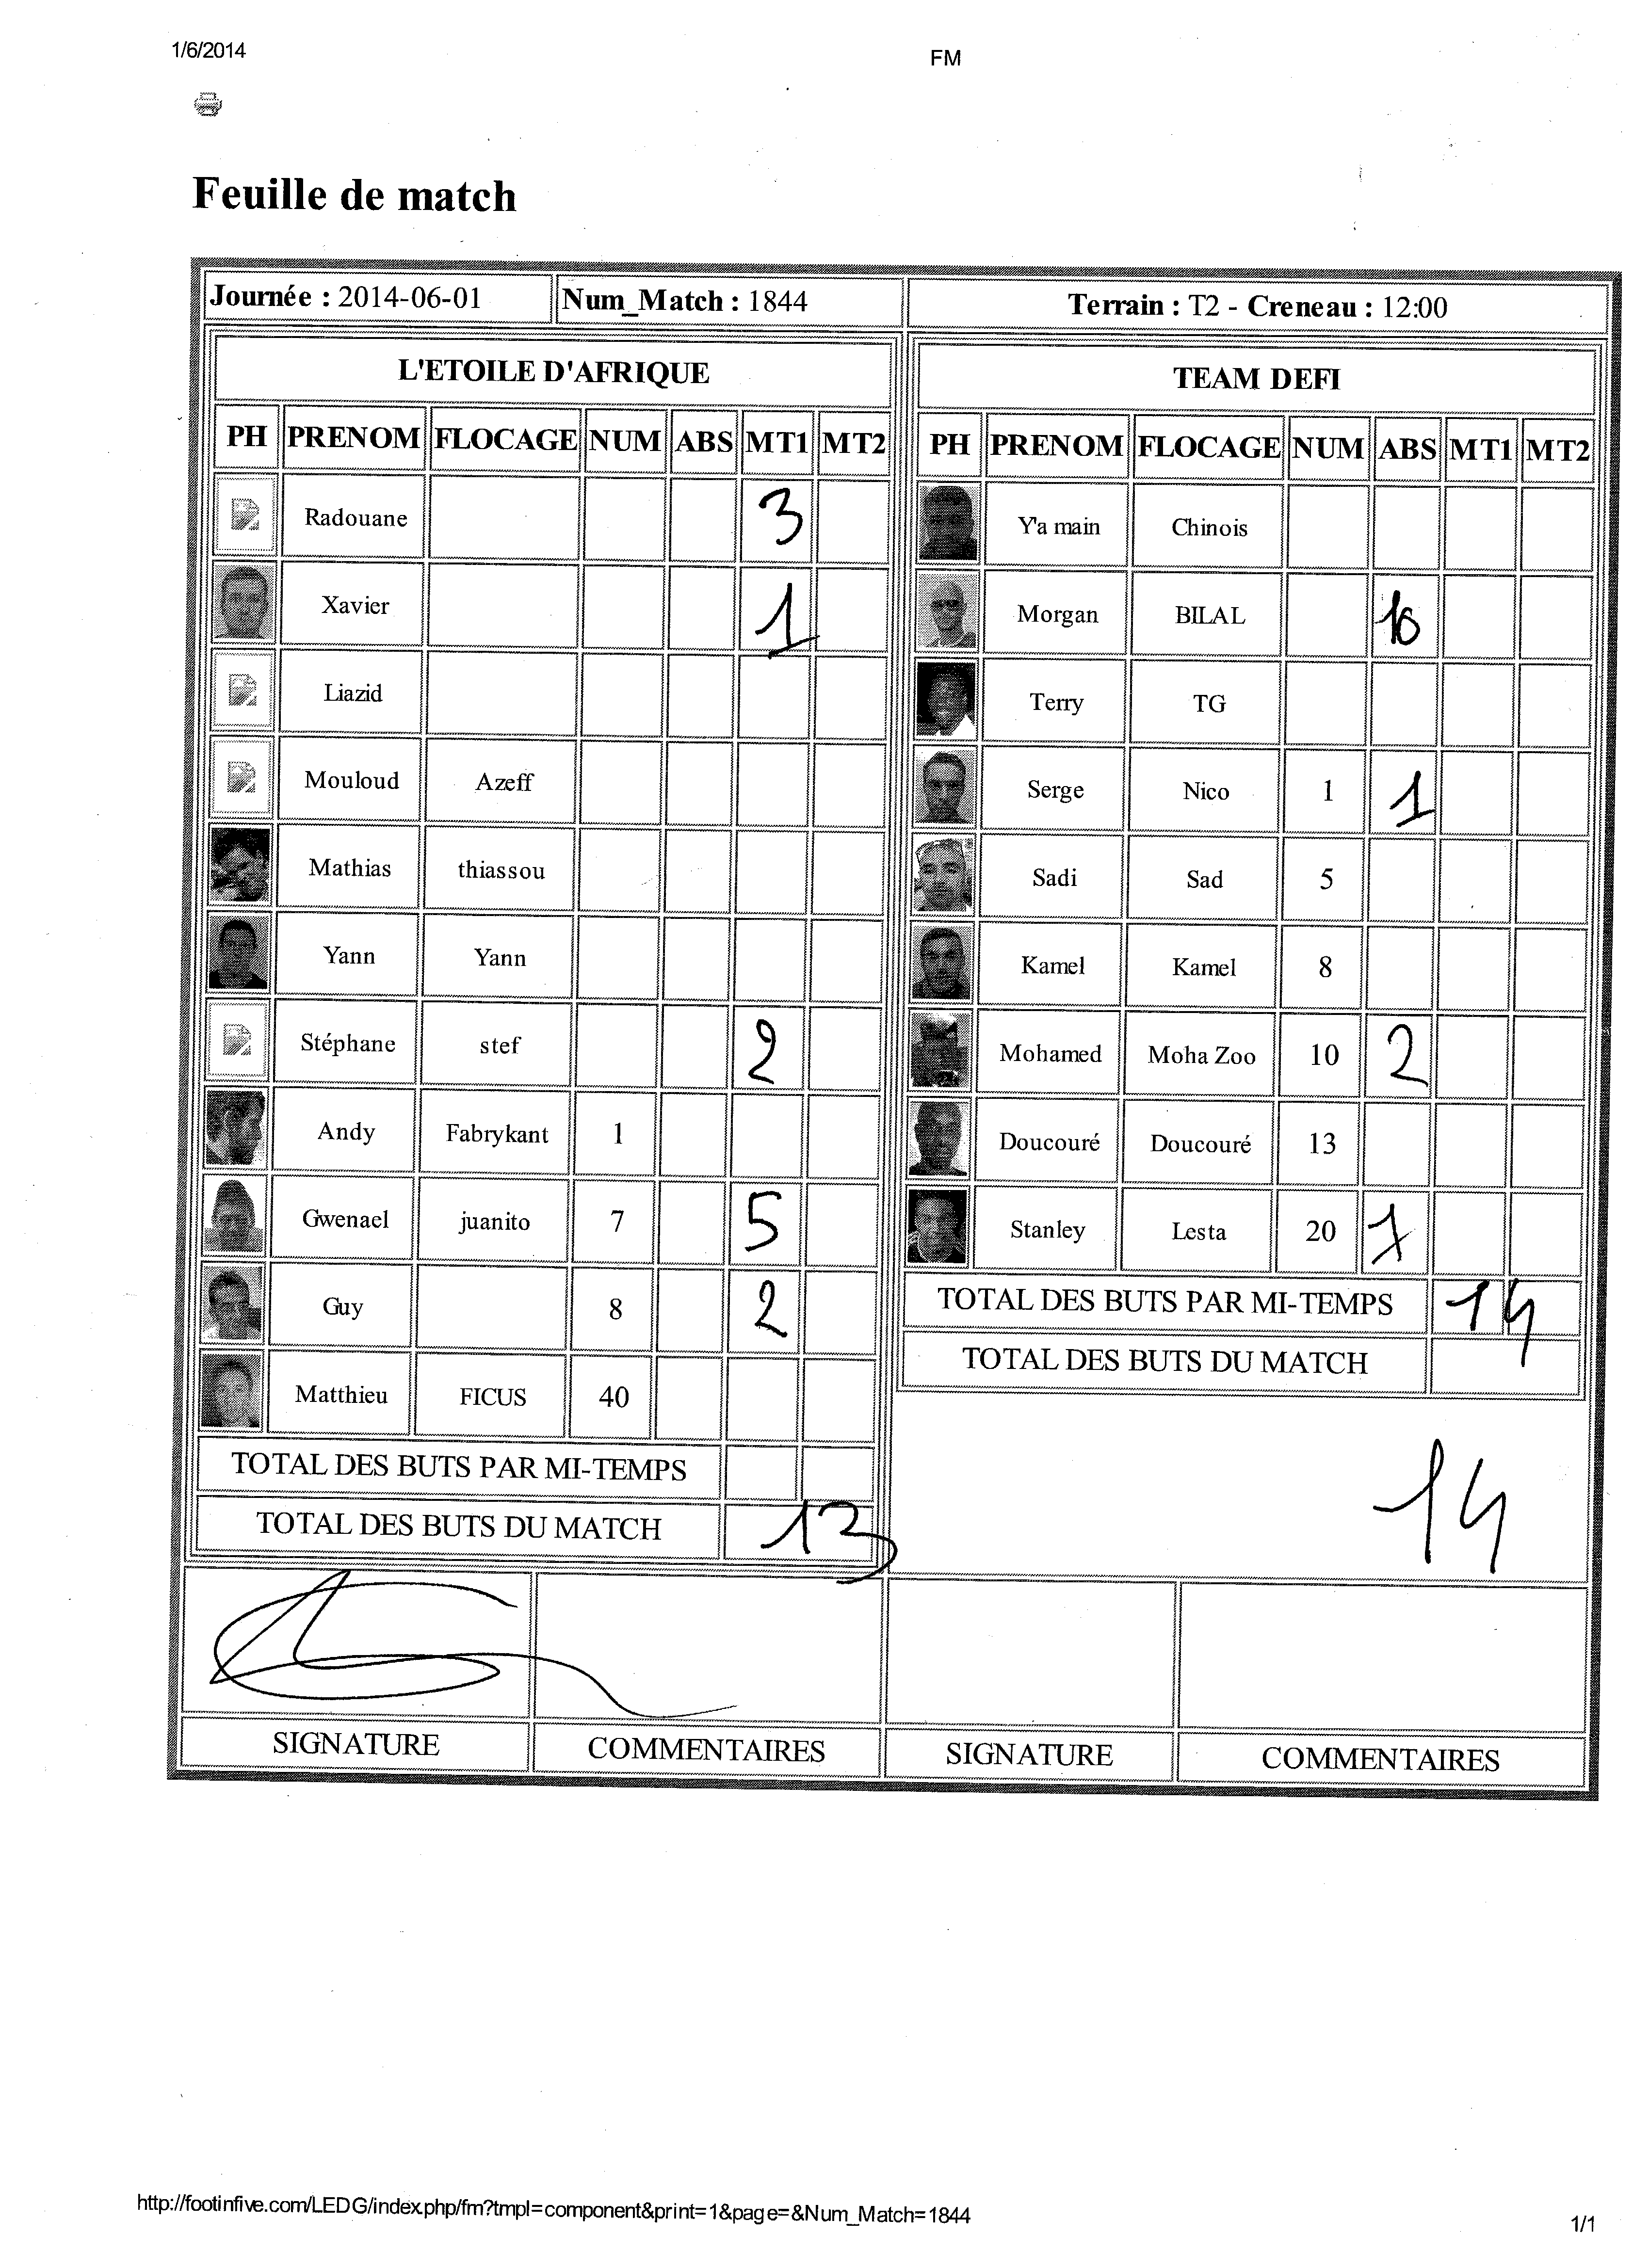 1/6/2014
FM
Feuille de match
Journée : 2014-06-01
Num_Match : 1844
Terrain : T2 - Creneau : 12:00
L'ETOILE D'AFRIQUE
PH PRENOM FLOCAGE NUM ABS MT1 MT2
Radouane 3
Xavier 1
Liazid
Mouloud Azeff
Mathias thiassou
Yann Yann
Stéphane stef 2
Andy Fabrykant 1
Gwenael juanito 7 5
Guy 8 2
Matthieu FICUS 40
TOTAL DES BUTS PAR MI-TEMPS
TOTAL DES BUTS DU MATCH 13
TEAM DEFI
PH PRENOM FLOCAGE NUM ABS MT1 MT2
Y'a main Chinois
Morgan BILAL 10
Terry TG
Serge Nico 1 1
Sadi Sad 5
Kamel Kamel 8
Mohamed Moha Zoo 10 2
Doucouré Doucouré 13
Stanley Lesta 20 1
TOTAL DES BUTS PAR MI-TEMPS 14
TOTAL DES BUTS DU MATCH
14
SIGNATURE COMMENTAIRES SIGNATURE COMMENTAIRES
http://footinfive.com/LEDG/index.php/fm?tmpl=component&print=1&page=&Num_Match=1844
1/1